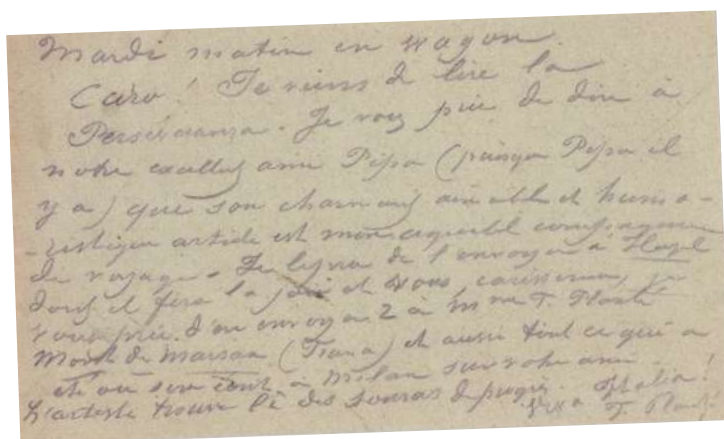 Mardi matin en wagon.
Caro! Je viens de lire la
Perseveranza. Je vous prie de dire à
notre excellent ami Pipa (puisque Pipa il
y a) que son charmant aimable et humo-
-ristique article est mon compagnon
de voyage. Je de l'envoyer à
dont il fera la joie et vous, carissimo, je
vous prie d'en envoyer 2 à Mme F. Planté
Mont de Marsan (France) et aussi tout ce qui a
été ou sera écrit à Milan sur votre ami.
L'artiste trouve là des sources de progrès. Italia!
Viva F. Planté